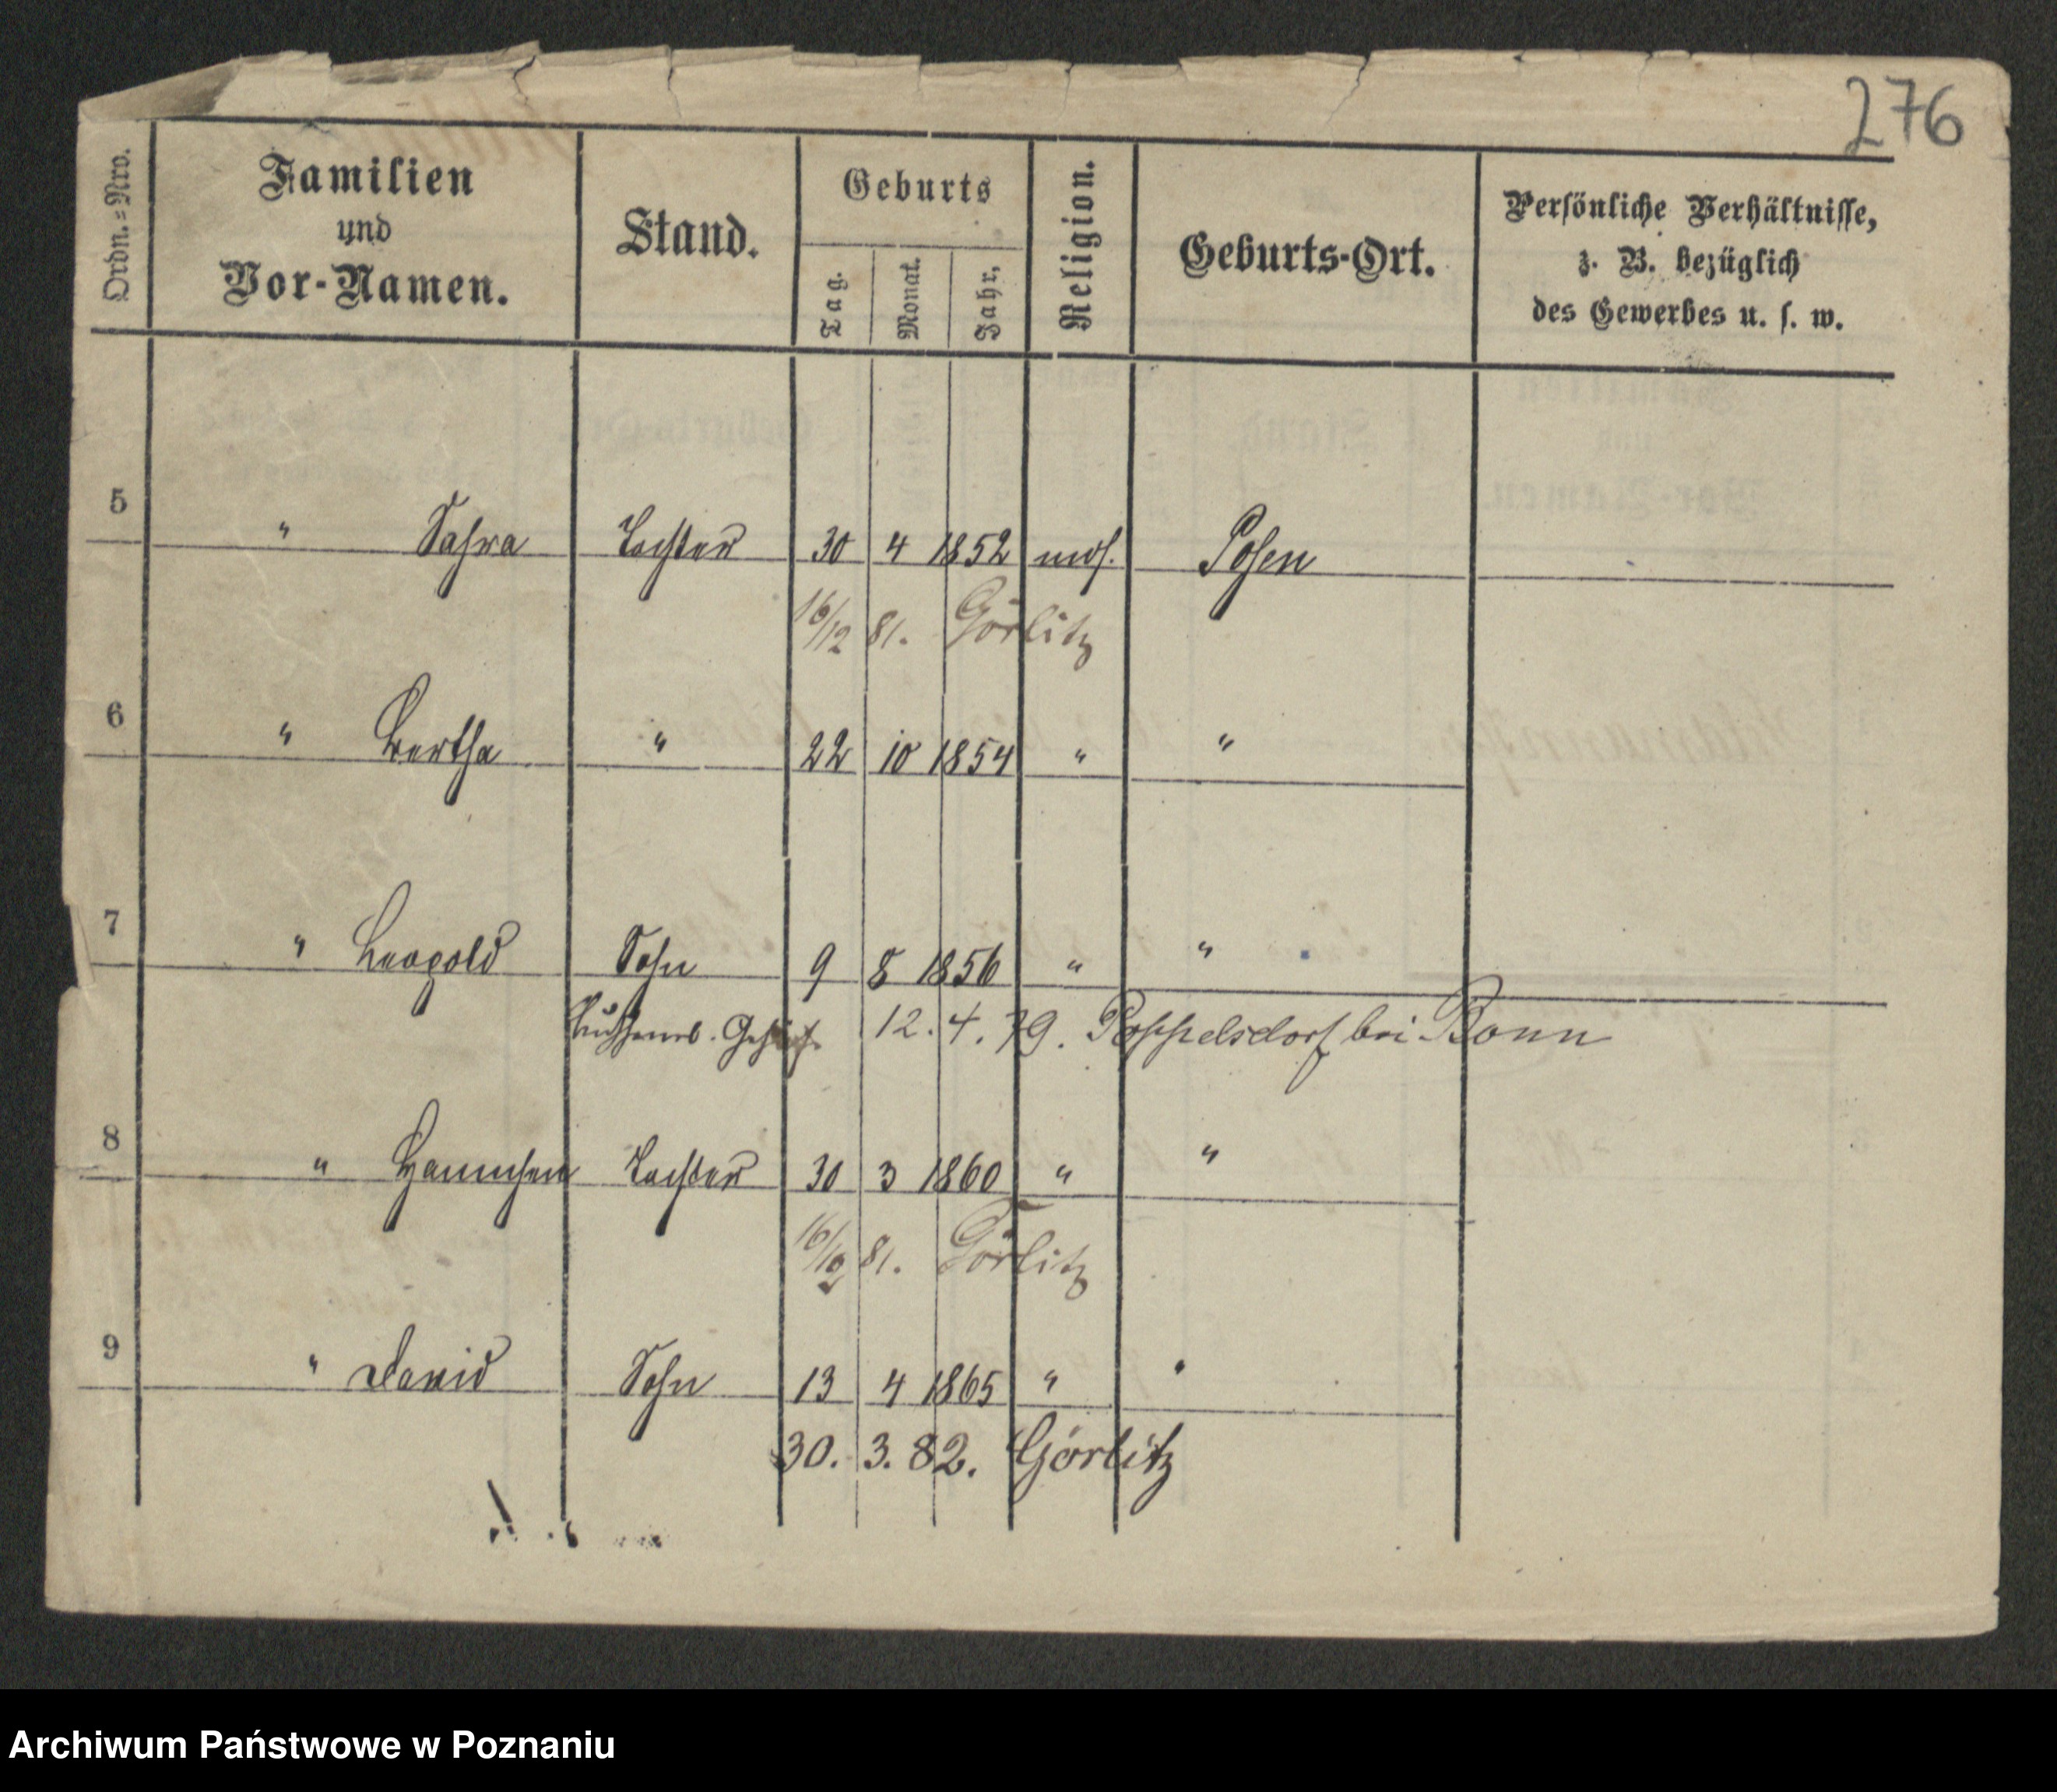 276
Ordn.=Nro.
Familien
und
Vor-Namen.
Stand.
Geburts
Tag.
Monat.
Jahr,
Religion.
Geburts-Ort.
Persönliche Verhältnisse,
z. B. bezüglich
des Gewerbes u. s. w.
5 " Sahra Tochter 30 4 1852 mos. Posen
16/12 81. Görlitz
6 " Bertha " 22 10 1854 " "
7 " Leopold Sohn 9 8 1856 " "
12. 4. 79. Poppelsdorf bei Bonn
8 " Hannchen Tochter 30 3 1860 " "
16/12 81. Görlitz
9 " David Sohn 13 4 1865 " "
30. 3. 82. Görlitz
Archiwum Państwowe w Poznaniu